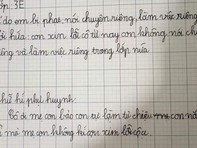 ớp: 3E
í do em bị phạt: nói chuyện riêng, làm việc riêng
ời hứa: con xin lỗi cô từ nay con không nói ch
êng và làm việc riêng trong lớp nữa.
hữ kí phụ huynh:
Cô ơi mẹ con bảo con tự làm tự chịu mẹ con nó
mà mẹ con không kí con xin lỗi cô ạ.